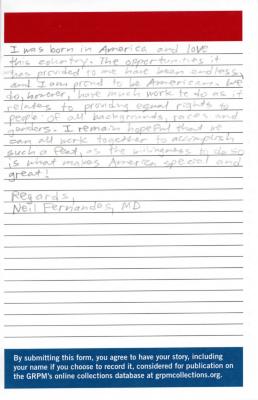 I was born in America and love
this country. The opportunities it
has provided to me have been endless,
and I am proud to be American. We
do, however, have much work to do as it
relates to providing equal rights to
people of all backgrounds, races and
genders. I remain hopeful that we
can all work together to accomplish
such a feat, as the willingness to do so
is what makes America special and
great!
Regards,
Neil Fernandes, MD
By submitting this form, you agree to have your story, including
your name if you choose to record it, considered for publication on
the GRPM's online collections database at grpmcollections.org.